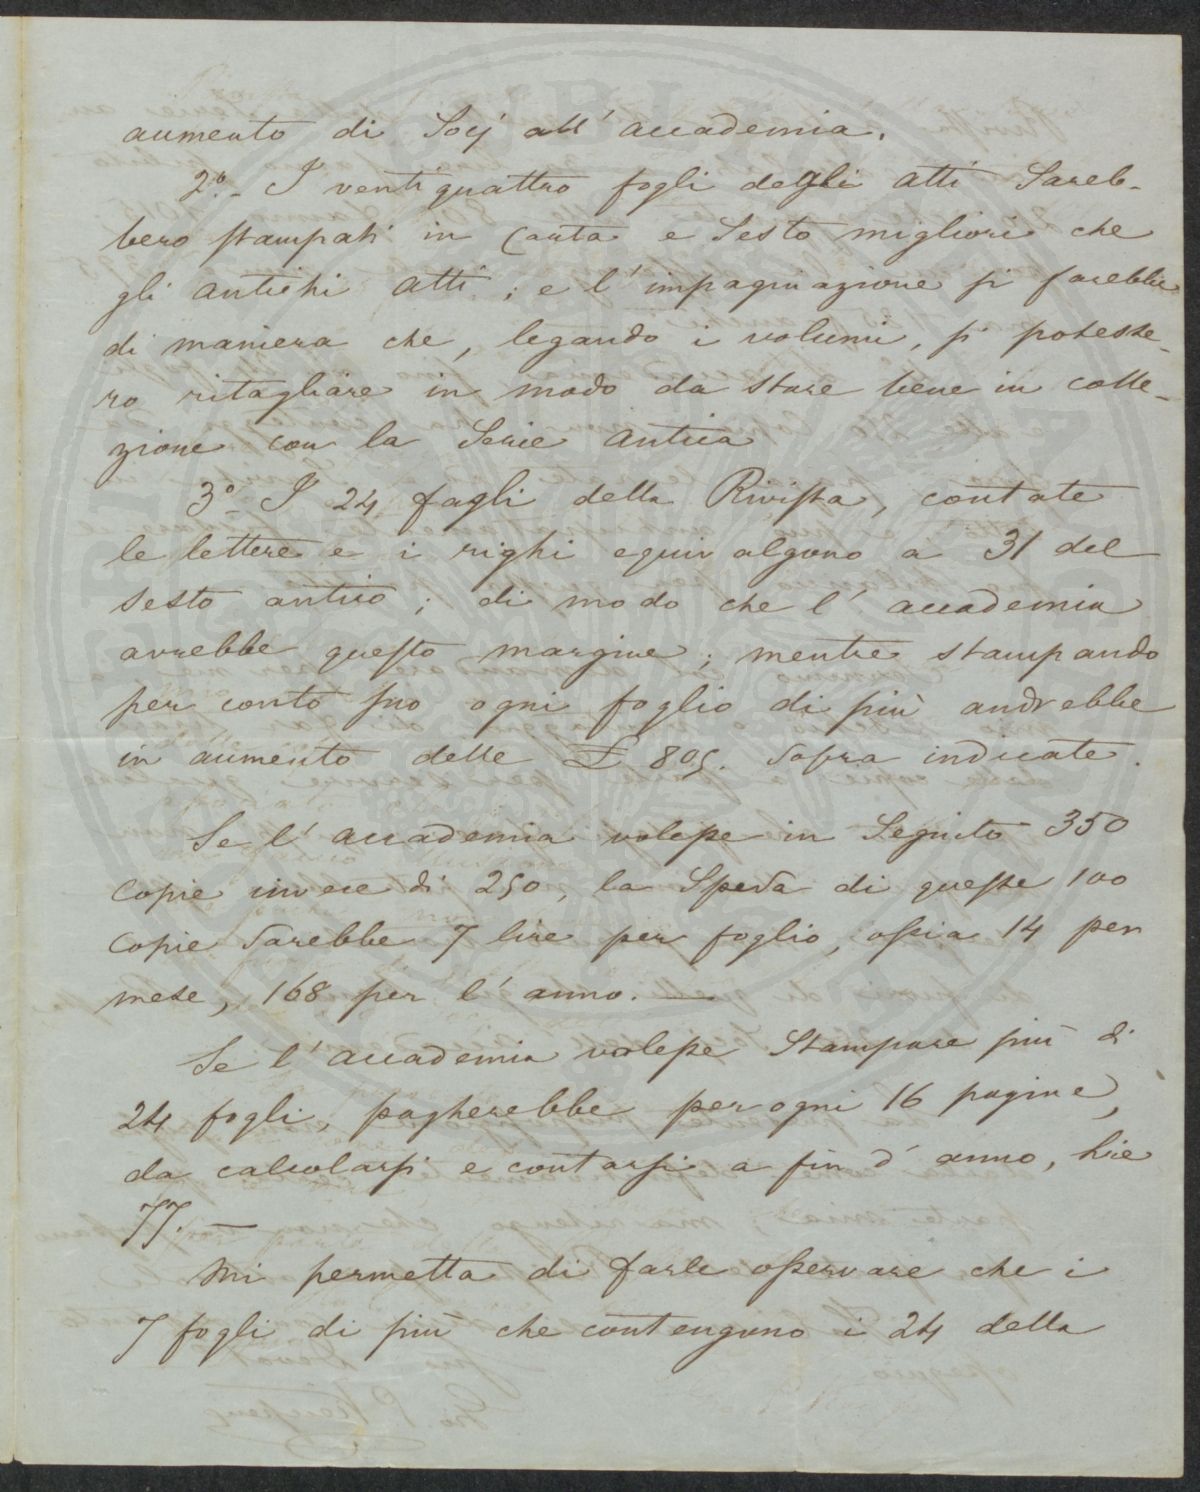 aumento di Socj all' accademia.
2.o - I ventiquattro fogli degli atti Sareb-
bero stampati in Carta e Sesto migliori che
gli antichi atti; e l'impaginazione si farebbe
di maniera che, legando i volumi, si potesse-
ro ritagliare in modo da stare bene in colle-
zione con la Serie antica
3.o - I 24 fogli della Rivista, contate
le lettere e i righi equivalgono a 31 del
sesto antico; di modo che l'accademia
avrebbe questo margine; mentre stampando
per conto suo ogni foglio di più andrebbe
in aumento delle £ 805. Sopra indicate.
Se l'accademia volesse in Seguito 350
Copie invece di 250, la Spesa di queste 100
Copie Sarebbe 7 lire per foglio, ossia 14 per
mese, 168 per l'anno. —
Se l'accademia volesse Stampare più di
24 fogli, pagherebbe per ogni 16 pagine,
da calcolarsi e contarsi a fin d'anno, lire
77. —
Mi permetta di farle osservare che i
7 fogli di più che contengono i 24 della